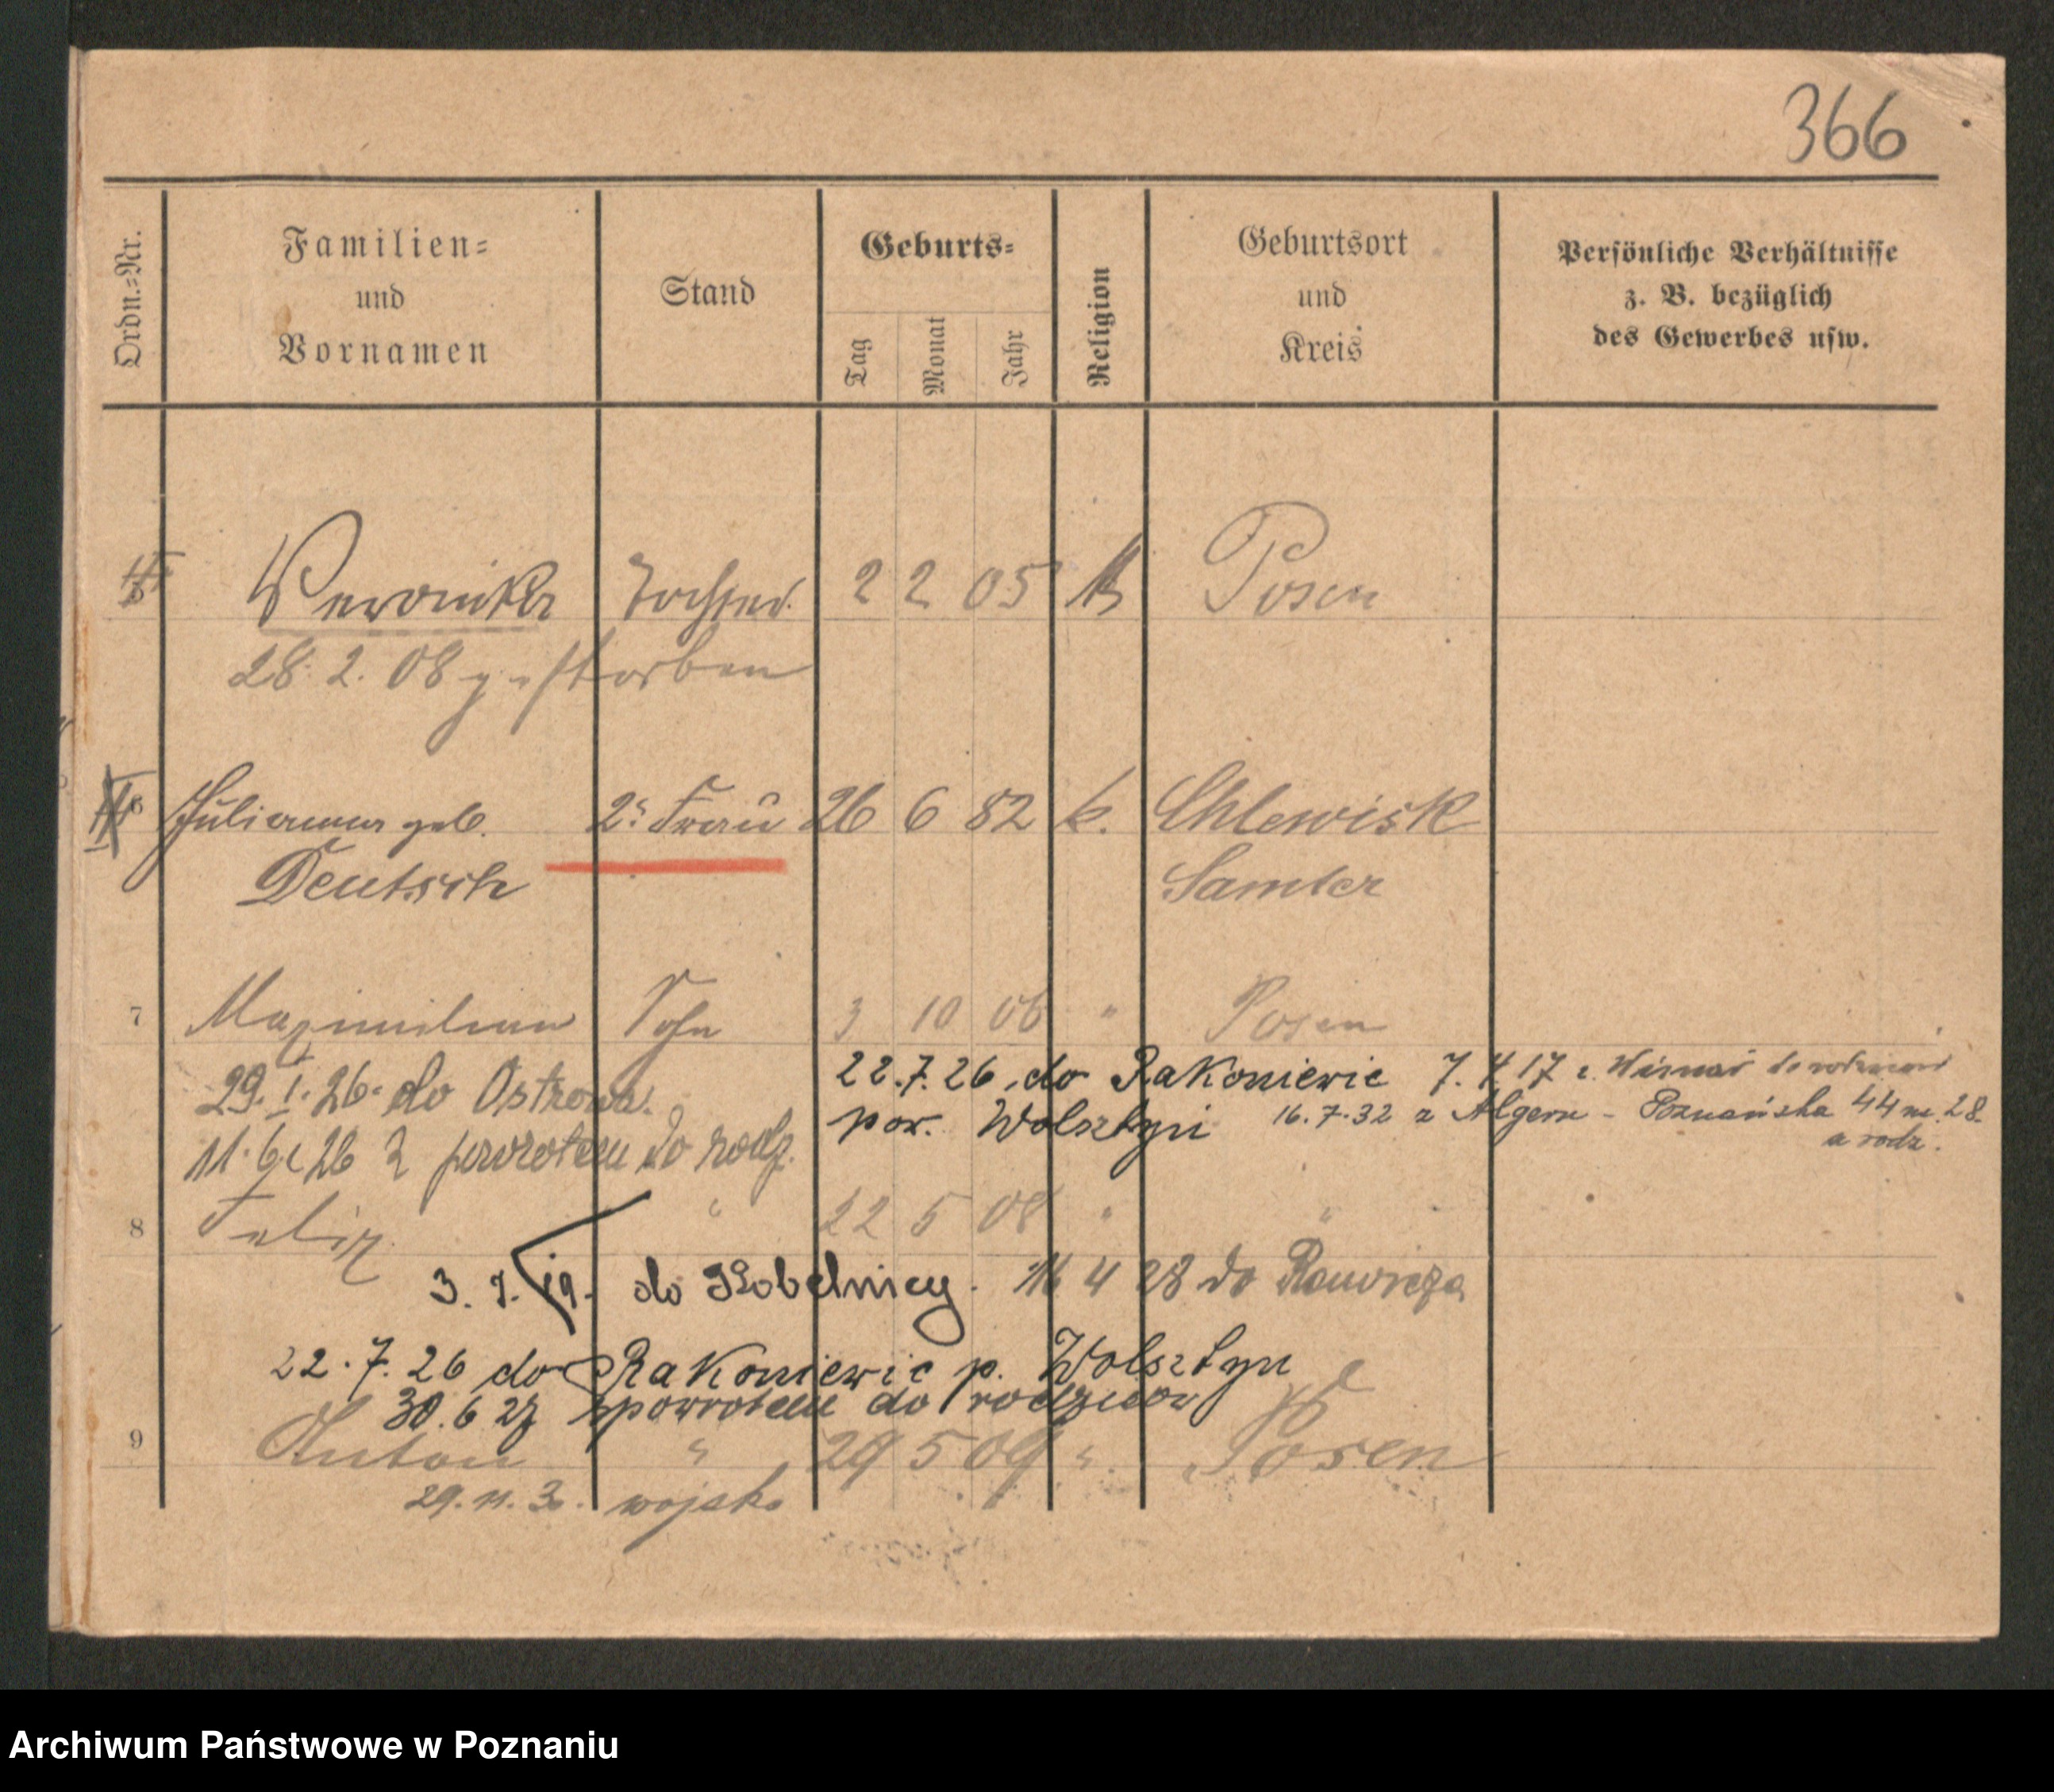 366
Ordn.-Nr.
Familien-
und
Vornamen
Stand
Geburts-
Tag
Monat
Jahr
Religion
Geburtsort
und
Kreis
Persönliche Verhältnisse
z. B. bezüglich
des Gewerbes usw.
5 Veronika Tochter 2 2 05 k Posen
28. 2. 08 gestorben
6 Julianna geb. 2. Frau 26 6 82 k. Chlewisk
Deutsch Samter
7 Maximilian Sohn 3 10 06 " Posen
29. I. 26. do Ostrowa.
22.7.26. do Rakoniewic
por. Wolsztyn
7. 4 17 z Wismar
16.7.32 z Algeru - Poznańska 44 m. 28
a rodz.
11. 6. 26 z powrotem do rodz.
8 Felix " 22 5 08 " "
3. 7. 19. do Kobelnicy. 16 4 28 do Rawicza
22.7.26 do Rakoniewic p. Wolsztyn
30.6 27 zpowrotem do rodziców
9 Anton " 29 5 09 " Posen
29. 11. 30. wojsko
Archiwum Państwowe w Poznaniu